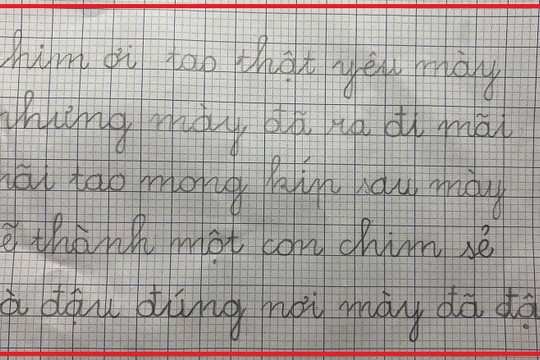 him ơi tao thật yêu mày
nhưng mày đã ra đi mãi
mãi tao mong kíp sau mày
ẽ thành một con chim sẻ
à đậu đúng nơi mày đã đậ